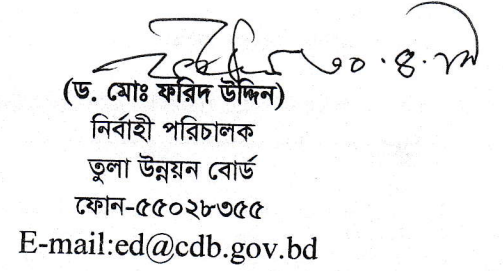 ৩০.৪.১৮
(ড. মোঃ ফরিদ উদ্দিন)
নির্বাহী পরিচালক
তুলা উন্নয়ন বোর্ড
ফোন-৫৫০২৮৩৫৫
E-mail:ed@cdb.gov.bd